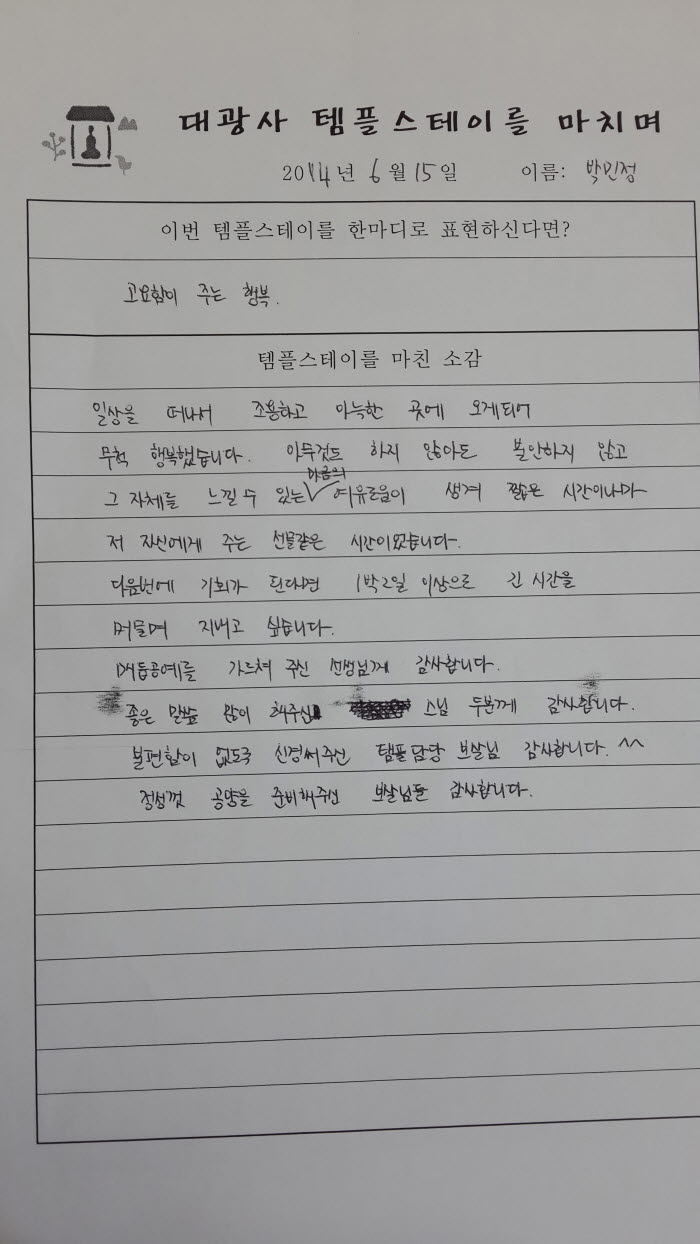 대광사 템플스테이를 마치며
2014년 6월 15일 이름: 박민정
이번 템플스테이를 한마디로 표현하신다면?
고요함이 주는 행복.
템플스테이를 마친 소감
일상을 떠나서 조용하고 아늑한 곳에 오게되어
무척 행복했습니다. 아무것도 하지 않아도 불안하지 않고
그 자체를 느낄 수 있는 마음의 여유로움이 생겨 짧은 시간이나마
저 자신에게 주는 선물같은 시간이었습니다.
다음번에 기회가 된다면 1박2일 이상으로 긴 시간을
머물며 지내고 싶습니다.
매듭공예를 가르쳐 주신 선생님께 감사합니다.
좋은 말씀 많이 해주신 스님 두분께 감사합니다.
불편함이 없도록 신경써주신 템플담당 보살님 감사합니다. ^^
정성껏 공양을 준비해주신 보살님들 감사합니다.